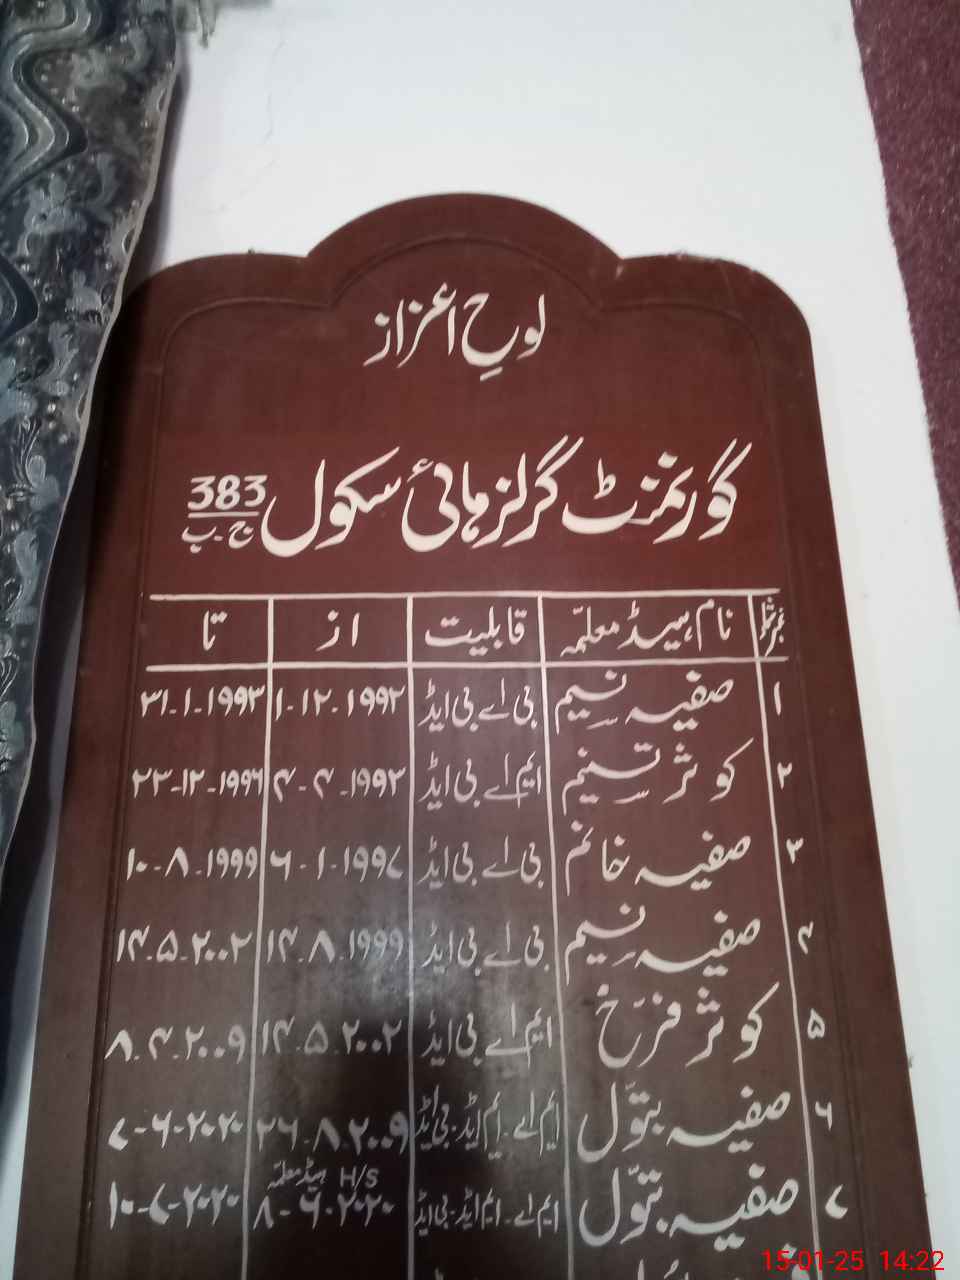 لوحِ اعزاز
گورنمنٹ گرلز ہائی سکول 383 ج۔ب
نمبر شمار نام ہیڈ معلمّہ قابلیت از تا
۱ صفیہ نسیم بی اے بی ایڈ ۱-۱۲-۱۹۹۲ ۳۱-۱-۱۹۹۳
۲ کوثر تسنیم ایم اے بی ایڈ ۴-۴-۱۹۹۲ ۲۳-۱۲-۱۹۹۶
۳ صفیہ خانم بی اے بی ایڈ ۶-۱-۱۹۹۷ ۱۰-۸-۱۹۹۹
۴ صفیہ نسیم بی اے بی ایڈ ۱۴-۸-۱۹۹۹ ۱۴-۵-۲۰۰۲
۵ کوثر فرّخ ایم اے بی ایڈ ۱۴-۵-۲۰۰۲ ۸-۴-۲۰۰۹
۶ صفیہ بتوّل ایم اے۔ایم ایڈ۔بی ایڈ ۲۶-۸-۲۰۰۹ ۷-۶-۲۰۲۰
ہیڈ معلمّہ H/S
۷ صفیہ بتوّل ایم اے۔ایم ایڈ۔بی ایڈ ۸-۶-۲۰۲۰ ۱۰-۷-۲۰۲۰
15-01-25 14:22